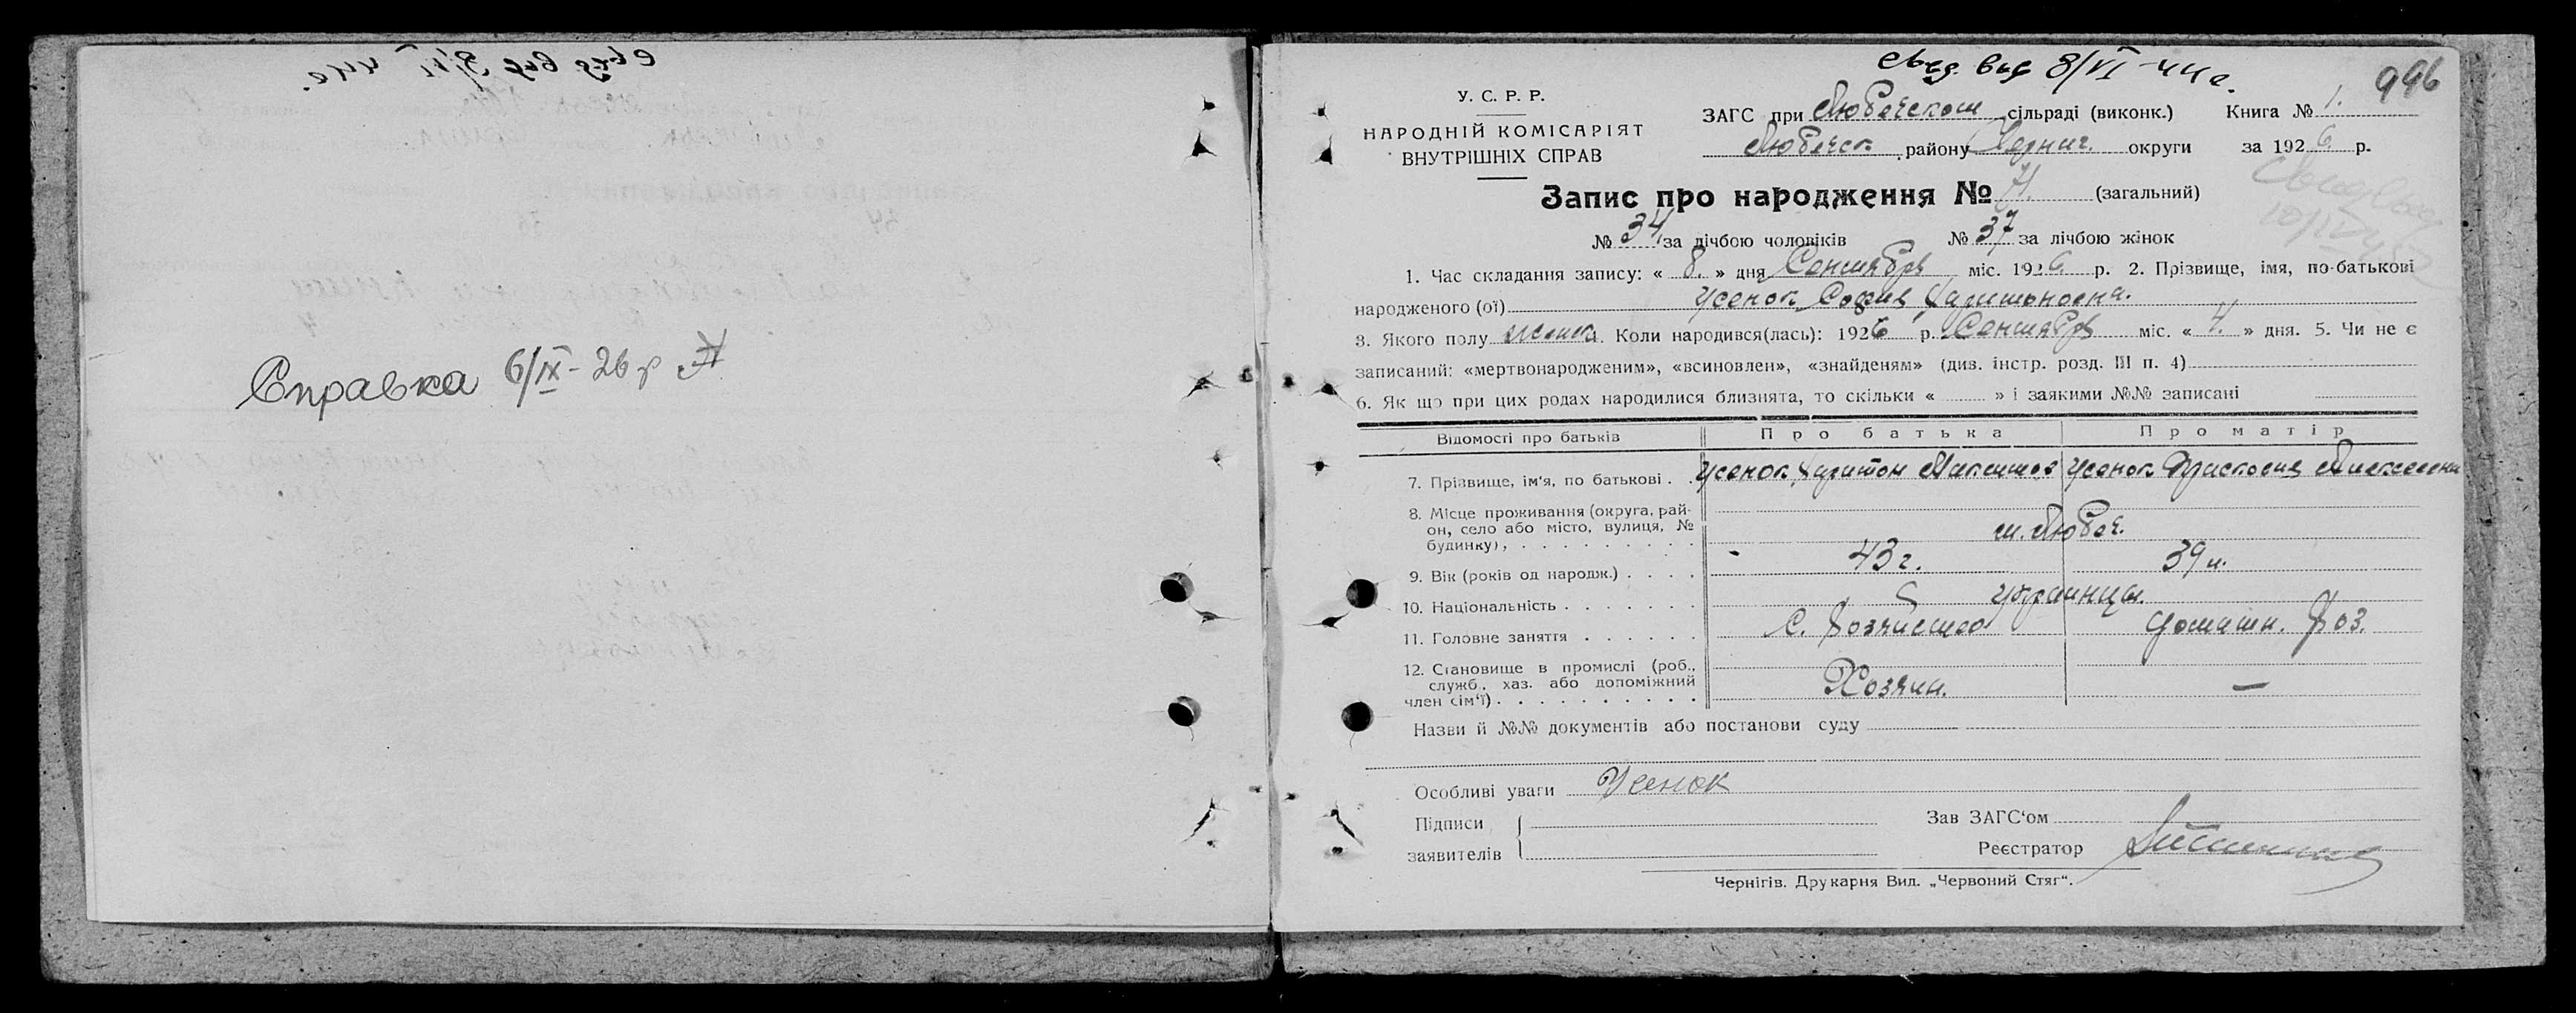 Справка 6/IX - 26 р
Свид. выд 8/VI - 44 г.
996
У. С. Р. Р.
НАРОДНІЙ КОМІСАРІЯТ
ВНУТРІШНІХ СПРАВ
ЗАГС при Любечском сільраді (виконк.) Книга № 1.
Любечск. району Черниг. округи за 1926 р.
Запис про народження № 71. (загальний)
№ 34 за лічбою чоловіків № 37 за лічбою жінок
1. Час складання запису: « 8. » дня Сентября міс. 1926 р. 2. Прізвище, імя, по-батькові
народженого (ої) Усенок София Харитоновна.
3. Якого полу женск. Коли народився(лась): 1926 р. Сентября міс. « 4. » дня. 5. Чи не є
записаний: «мертвонародженим», «всиновлен», «знайденям» (див. інстр. розд. III п. 4)
6. Як що при цих родах народилися близнята, то скільки « » і заякими №№ записані
Відомості про батьків Про батька Про матір
7. Прізвище, ім'я, по батькові . . Усенок Харитон Максимов Усенок Прасковия Алексеевн
8. Місце проживання (округа, рай-
он, село або місто, вулиця, №
будинку), . . . . . . . . . м. Любеч.
9. Вік (років од народж.) . . . . 43 г. 39 л.
10. Національність . . . . . . . Украинцы.
11. Головне заняття . . . . . . С. Хозяйство Домашн. Хоз.
12. Становище в промислі (роб.,
служб., хаз. або допоміжний
член сім'ї) . . . . . . . . . . Хозяин. —
Назви й №№ документів або постанови суду
Особливі уваги Усенок
Підписи
заявителів
Зав ЗАГС'ом
Реєстратор
Чернігів. Друкарня Вид. „Червоний Стяг".